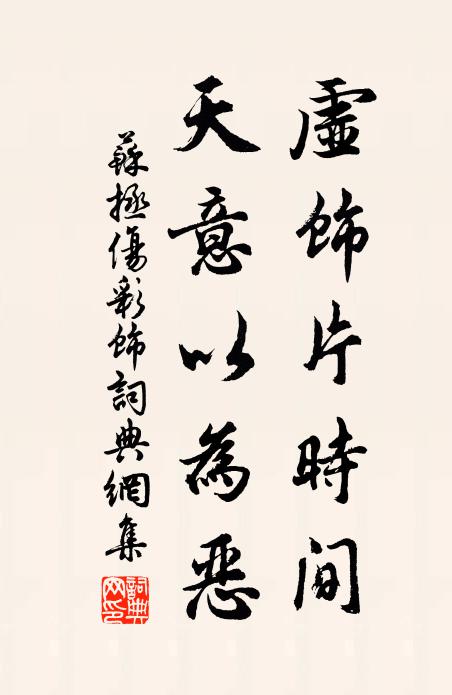 虛飾片時間
天意以為惡
蘇拯傷彩飾詞典網集
詞典网印